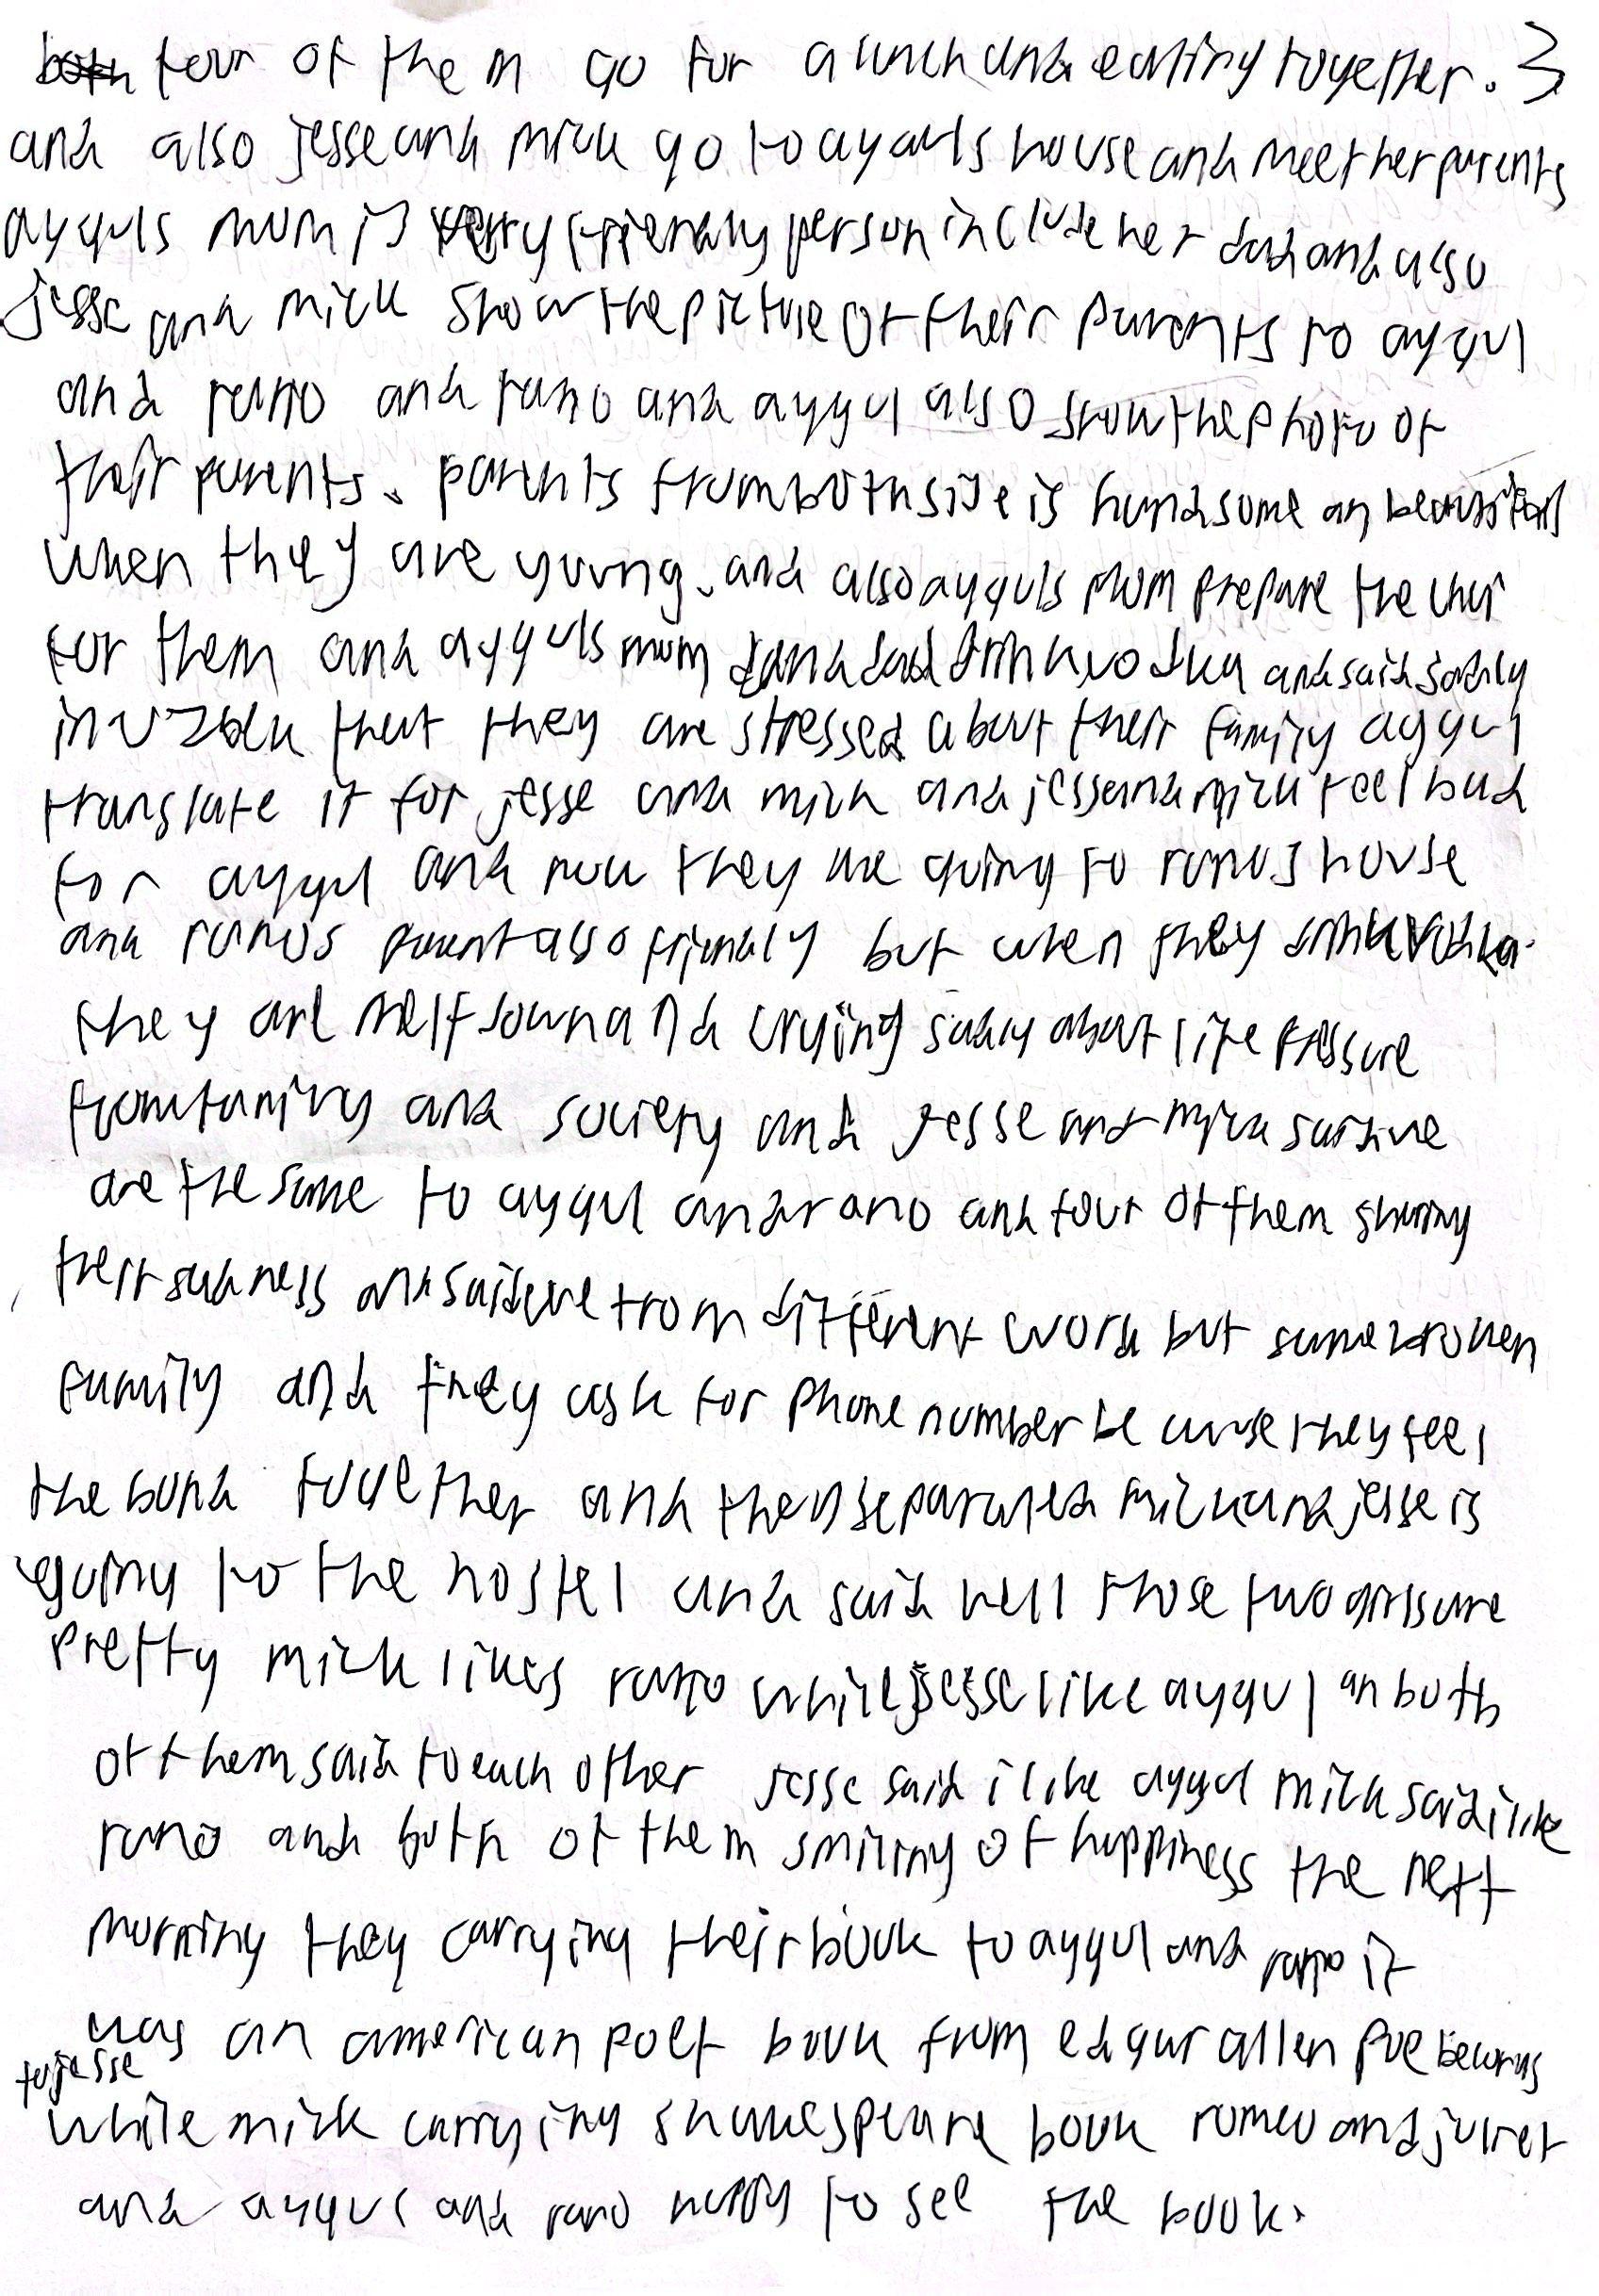 four of them go for a lunch and eating together. 3
and also jesse and mick go to ayquls house and meet her parents
ayquls mum is very friendly person include her dad and also
jesse and mick show the picture of their parents to ayqul
and rano and rano and ayqul also show the photo of
their parents. parents from both side is handsome an beautiful
when they are young. and also ayquls mum prepare the
for them and ayquls mum and dad drink vodka and said sadly
in uzbek that they are stressed about their family ayqul
translate it for jesse and mick and jesse and mick feel bad
for ayqul and now they are going to ranos house
and ranos parent also friendly but when they drink vodka
they are melt down and crying sadly about life pressure
from family and society and jesse and mick
are the same to ayqul and rano and four of them sharing
their sadness and said we from different world but same broken
family and they ask for phone number be cause they feel
the bond together and then separated mick and jesse is
going to the hostel and said well those two girls are
pretty mick likes rano while jesse like ayqul an both
of them said to each other jesse said i like ayqul mick said i like
rano and both of them smiling of happiness the next
morning they carrying their book to ayqul and rano it
was an american poet book from edgar allen poe belongs
to jesse
while mick carrying shakespeare book romeo and juliet
and ayqul and rano happy to see the book.